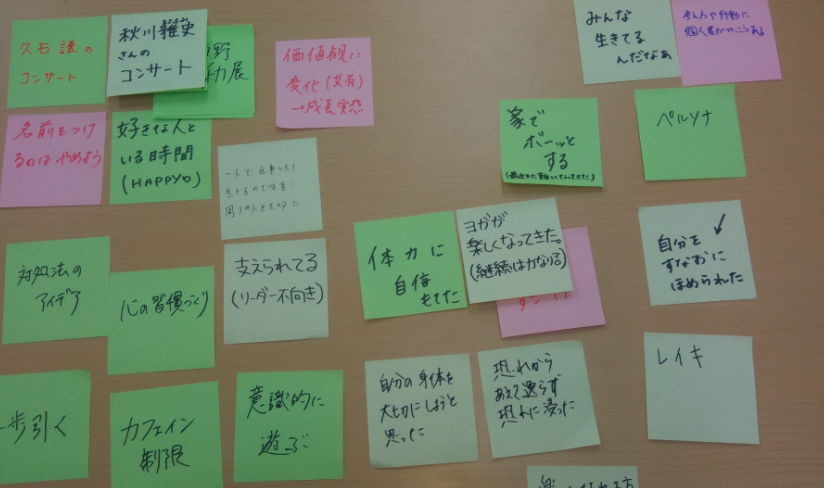 久石譲の
コンサート
秋川雅史
さんの
コンサート
野
展
価値観に
変化(共有)
→成長実感
みんな
生きてる
んだなあ
考え方や行動に
個人差がけっこうある
名前をつけ
るのはやめよう
好きな人と
いる時間
(HAPPY♡)
家で
ボーッと
する
ペルソナ
一人で仕事したり
周りの人を大切に
対処法の
アイデア
心の習慣づくり
支えられてる
(リーダー不向き)
体力に
自信
もてた
ヨガが
楽しくなってきた。
(継続は力なり)
自分を
すなおに
ほめられた
一歩引く
カフェイン
制限
意識的に
遊ぶ
自分の身体を
大切にしようと
思った
恐れから
あえて逃らず
恐れに浸った
レイキ